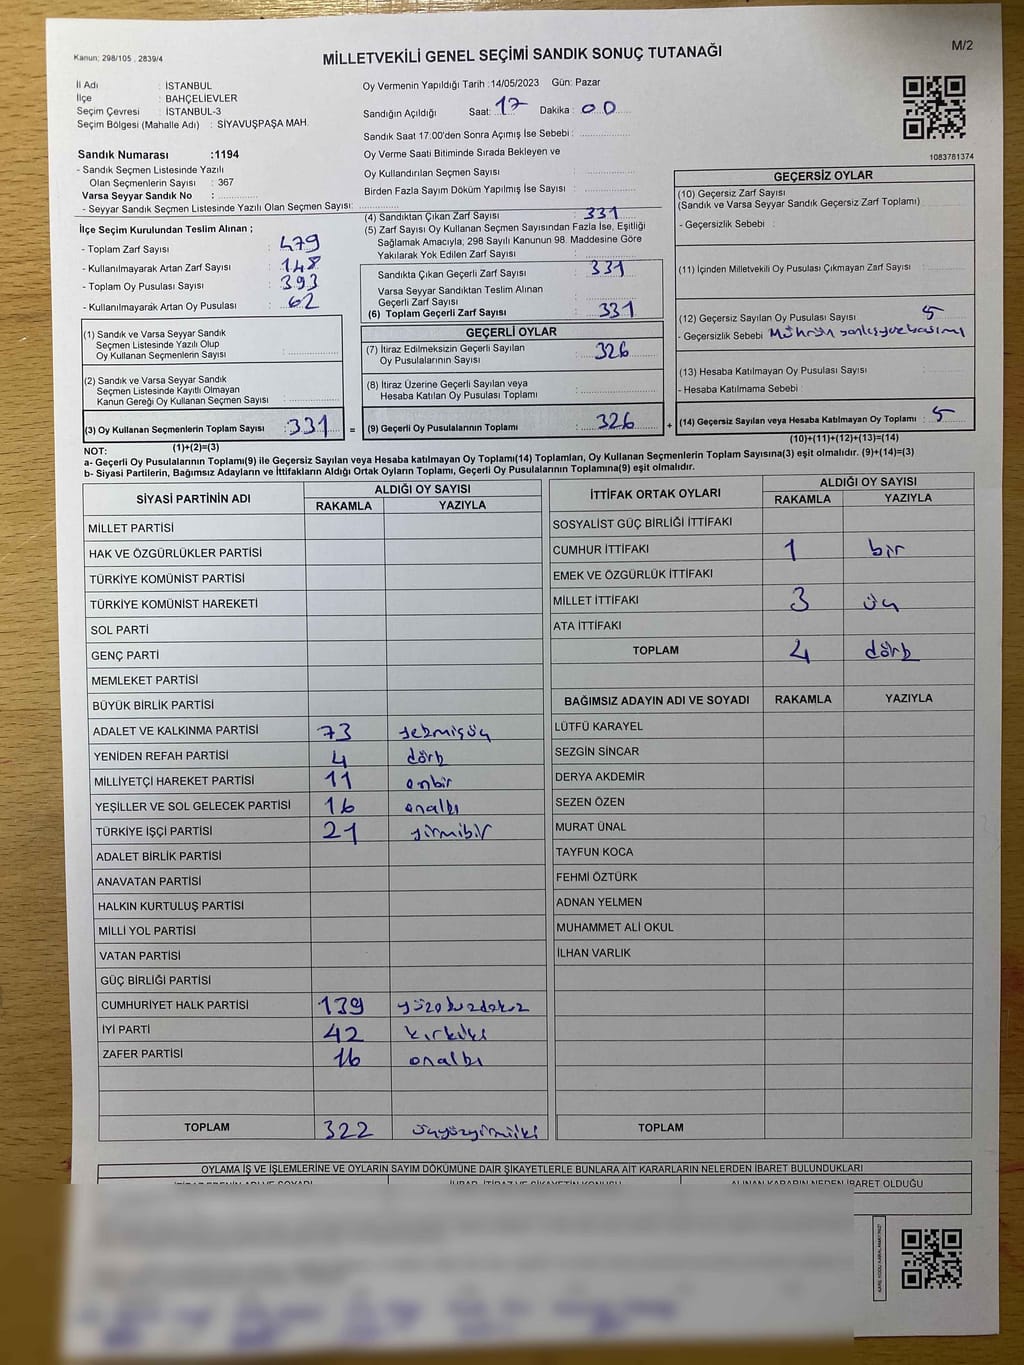 Kanun: 298/105 , 2839/4
MİLLETVEKİLİ GENEL SEÇİMİ SANDIK SONUÇ TUTANAĞI
M/2
İl Adı : İSTANBUL
İlçe : BAHÇELİEVLER
Seçim Çevresi : İSTANBUL-3
Seçim Bölgesi (Mahalle Adı) : SİYAVUŞPAŞA MAH.
Sandık Numarası :1194
- Sandık Seçmen Listesinde Yazılı
Olan Seçmenlerin Sayısı : 367
Varsa Seyyar Sandık No :
- Seyyar Sandık Seçmen Listesinde Yazılı Olan Seçmen Sayısı:
Oy Vermenin Yapıldığı Tarih :14/05/2023 Gün: Pazar
Sandığın Açıldığı Saat: 17 Dakika : 00
Sandık Saat 17:00'den Sonra Açımış İse Sebebi :
Oy Verme Saati Bitiminde Sırada Bekleyen ve
Oy Kullandırılan Seçmen Sayısı :
Birden Fazla Sayım Döküm Yapılmış İse Sayısı :
1083781374
İlçe Seçim Kurulundan Teslim Alınan ;
- Toplam Zarf Sayısı : 479
- Kullanılmayarak Artan Zarf Sayısı : 148
- Toplam Oy Pusulası Sayısı : 393
- Kullanılmayarak Artan Oy Pusulası : 62
(1) Sandık ve Varsa Seyyar Sandık
Seçmen Listesinde Yazılı Olup
Oy Kullanan Seçmenlerin Sayısı :
(2) Sandık ve Varsa Seyyar Sandık
Seçmen Listesinde Kayıtlı Olmayan
Kanun Gereği Oy Kullanan Seçmen Sayısı :
(3) Oy Kullanan Seçmenlerin Toplam Sayısı : 331 =
(1)+(2)=(3)
(4) Sandıktan Çıkan Zarf Sayısı : 331
(5) Zarf Sayısı Oy Kullanan Seçmen Sayısından Fazla İse, Eşitliği
Sağlamak Amacıyla, 298 Sayılı Kanunun 98. Maddesine Göre
Yakılarak Yok Edilen Zarf Sayısı :
Sandıkta Çıkan Geçerli Zarf Sayısı : 331
Varsa Seyyar Sandıktan Teslim Alınan
Geçerli Zarf Sayısı :
(6) Toplam Geçerli Zarf Sayısı : 331
GEÇERLİ OYLAR
(7) İtiraz Edilmeksizin Geçerli Sayılan
Oy Pusulalarının Sayısı : 326
(8) İtiraz Üzerine Geçerli Sayılan veya
Hesaba Katılan Oy Pusulası Toplamı :
(9) Geçerli Oy Pusulalarının Toplamı : 326 +
GEÇERSİZ OYLAR
(10) Geçersiz Zarf Sayısı
(Sandık ve Varsa Seyyar Sandık Geçersiz Zarf Toplamı)
- Geçersizlik Sebebi :
(11) İçinden Milletvekili Oy Pusulası Çıkmayan Zarf Sayısı :
(12) Geçersiz Sayılan Oy Pusulası Sayısı : 5
- Geçersizlik Sebebi
(13) Hesaba Katılmayan Oy Pusulası Sayısı :
- Hesaba Katılmama Sebebi :
(14) Geçersiz Sayılan veya Hesaba Katılmayan Oy Toplamı : 5
(10)+(11)+(12)+(13)=(14)
NOT:
a- Geçerli Oy Pusulalarının Toplamı(9) ile Geçersiz Sayılan veya Hesaba katılmayan Oy Toplamı(14) Toplamları, Oy Kullanan Seçmenlerin Toplam Sayısına(3) eşit olmalıdır. (9)+(14)=(3)
b- Siyasi Partilerin, Bağımsız Adayların ve İttifakların Aldığı Ortak Oyların Toplamı, Geçerli Oy Pusulalarının Toplamına(9) eşit olmalıdır.
SİYASİ PARTİNİN ADI ALDIĞI OY SAYISI
RAKAMLA YAZIYLA
MİLLET PARTİSİ
HAK VE ÖZGÜRLÜKLER PARTİSİ
TÜRKİYE KOMÜNİST PARTİSİ
TÜRKİYE KOMÜNİST HAREKETİ
SOL PARTİ
GENÇ PARTİ
MEMLEKET PARTİSİ
BÜYÜK BİRLİK PARTİSİ
ADALET VE KALKINMA PARTİSİ 73 yetmişüç
YENİDEN REFAH PARTİSİ 4 dört
MİLLİYETÇİ HAREKET PARTİSİ 11 onbir
YEŞİLLER VE SOL GELECEK PARTİSİ 16 onaltı
TÜRKİYE İŞÇİ PARTİSİ 21 yirmibir
ADALET BİRLİK PARTİSİ
ANAVATAN PARTİSİ
HALKIN KURTULUŞ PARTİSİ
MİLLİ YOL PARTİSİ
VATAN PARTİSİ
GÜÇ BİRLİĞİ PARTİSİ
CUMHURİYET HALK PARTİSİ 139 yüzotuzdokuz
İYİ PARTİ 42 kırkiki
ZAFER PARTİSİ 16 onaltı
TOPLAM 322 üçyüzyirmiiki
İTTİFAK ORTAK OYLARI ALDIĞI OY SAYISI
RAKAMLA YAZIYLA
SOSYALİST GÜÇ BİRLİĞİ İTTİFAKI
CUMHUR İTTİFAKI 1 bir
EMEK VE ÖZGÜRLÜK İTTİFAKI
MİLLET İTTİFAKI 3 üç
ATA İTTİFAKI
TOPLAM 4 dört
BAĞIMSIZ ADAYIN ADI VE SOYADI RAKAMLA YAZIYLA
LÜTFÜ KARAYEL
SEZGİN SİNCAR
DERYA AKDEMİR
SEZEN ÖZEN
MURAT ÜNAL
TAYFUN KOCA
FEHMİ ÖZTÜRK
ADNAN YELMEN
MUHAMMET ALİ OKUL
İLHAN VARLIK
TOPLAM
OYLAMA İŞ VE İŞLEMLERİNE VE OYLARIN SAYIM DÖKÜMÜNE DAİR ŞİKAYETLERLE BUNLARA AİT KARARLARIN NELERDEN İBARET BULUNDUKLARI
ALINAN KARARIN NEDEN İBARET OLDUĞU